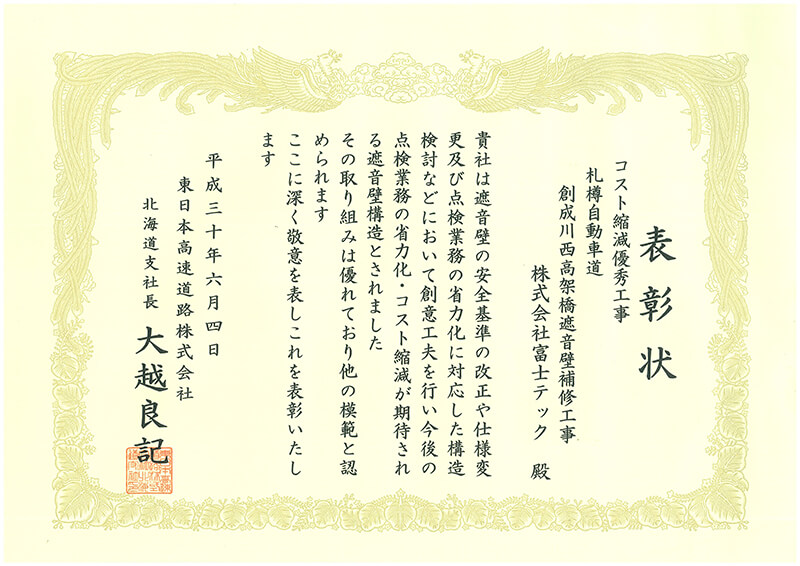 表彰状
コスト縮減優秀工事
札樽自動車道
創成川西高架橋遮音壁補修工事
株式会社富士テック 殿
貴社は遮音壁の安全基準の改正や仕様変
更及び点検業務の省力化に対応した構造
検討などにおいて創意工夫を行い今後の
点検業務の省力化・コスト縮減が期待され
る遮音壁構造とされました
その取り組みは優れており他の模範と認
められます
ここに深く敬意を表しこれを表彰いたし
ます
平成三十年六月四日
東日本高速道路株式会社
北海道支社長 大越良記